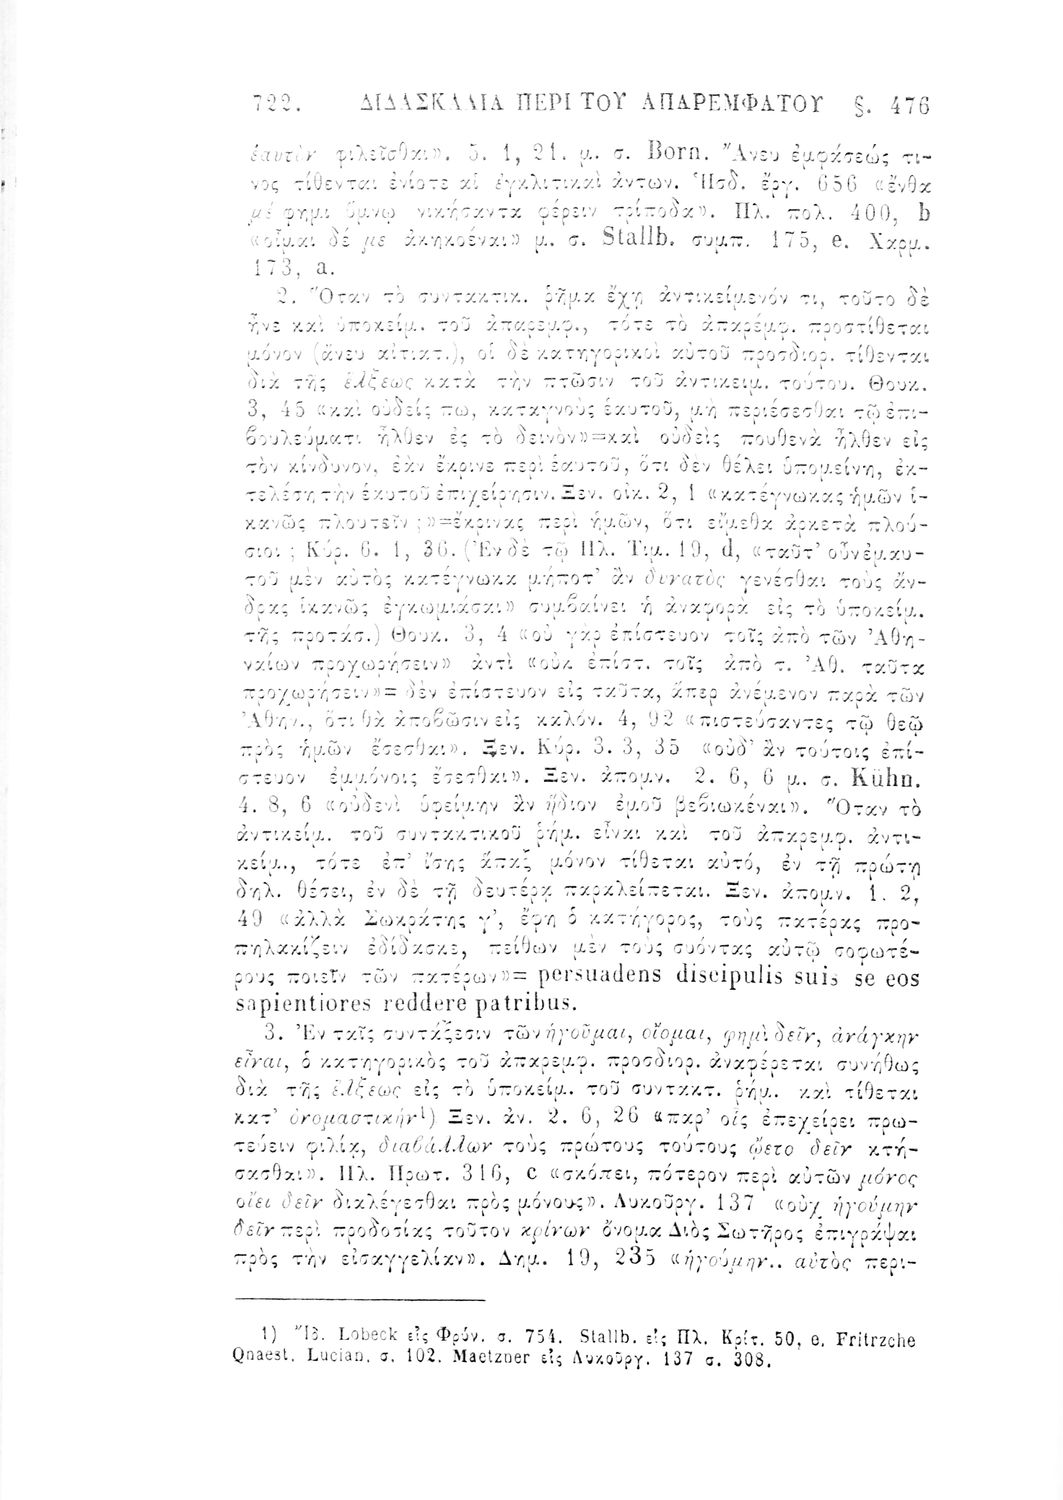 722. ΔΙΔΑΣΚΑΛΙΑ ΠΕΡΙ ΤΟΥ ΑΠΑΡΕΜΦΑΤΟΥ §. 476
ἑαυτὸν φιλεῖσθαι». 5. 1, 21. μ. σ. Born. Ἄνευ ἐμφάσεώς τι-
νος τίθενται ἐνίοτε αἱ ἐγκλιτικαὶ ἀντων. Ἡσδ. ἔργ. 656 «ἔνθα
μέ φημι ὕμνῳ νικήσαντα φέρειν τρίποδα». Πλ. πολ. 400, b
«οἶμαι δέ με ἀκηκοέναι» μ. σ. Stallb. συμπ. 175, e. Χαρμ.
173, a.
2. Ὅταν τὸ συντακτικ. ῥῆμα ἔχῃ ἀντικείμενόν τι, τοῦτο δὲ
ἦνε καὶ ὑποκείμ. τοῦ ἀπαρεμφ., τότε τὸ ἀπαρέμφ. προστίθεται
μόνον (ἄνευ αἰτιατ.), οἱ δὲ κατηγορικοὶ αὐτοῦ προσδιορ. τίθενται
διὰ τῆς ἕλξεως κατὰ τὴν πτῶσιν τοῦ ἀντικειμ. τούτου. Θουκ.
3, 45 «καὶ οὐδείς πω, καταγνοὺς ἑαυτοῦ, μὴ περιέσεσθαι τῷ ἐπι-
βουλεύματι ἦλθεν ἐς τὸ δεινὸν»=καὶ οὐδεὶς πουθενὰ ἦλθεν εἰς
τὸν κίνδυνον, ἐὰν ἔκρινε περὶ ἑαυτοῦ, ὅτι δὲν θέλει ὑπομείνῃ, ἐκ-
τελέσῃ τὴν ἑαυτοῦ ἐπιχείρησιν. Ξεν. οἰκ. 2, 1 «κατέγνωκας ἡμῶν ἱ-
κανῶς πλουτεῖν;»=ἔκρινας περὶ ἡμῶν, ὅτι εἴμεθα ἀρκετὰ πλού-
σιοι; Κύρ. 6. 1, 36. (Ἐν δὲ τῷ Πλ. Τιμ. 19, d, «ταῦτ’ οὖν ἐμαυ-
τοῦ μὲν αὐτὸς κατέγνωκα μήποτ’ ἂν δυνατὸς γενέσθαι τοὺς ἄν-
δρας ἱκανῶς ἐγκωμιάσαι» συμβαίνει ἡ ἀναφορὰ εἰς τὸ ὑποκείμ.
τῆς προτάσ.) Θουκ. 3, 4 «οὐ γὰρ ἐπίστευον τοῖς ἀπὸ τῶν Ἀθη-
ναίων προχωρήσειν» ἀντὶ «οὐκ ἐπίστ. τοῖς ἀπὸ τ. Ἀθ. ταῦτα
προχωρήσειν»= δὲν ἐπίστευον εἰς ταῦτα, ἅπερ ἀνέμενον παρὰ τῶν
Ἀθην., ὅτι θὰ ἀποβῶσιν εἰς καλόν. 4, 92 «πιστεύσαντες τῷ θεῷ
πρὸς ἡμῶν ἔσεσθαι». Ξεν. Κύρ. 3. 3, 35 «οὐδ’ ἂν τούτοις ἐπί-
στευον ἐμμόνοις ἔσεσθαι». Ξεν. ἀπομν. 2. 6, 6 μ. σ. Kühn.
4. 8, 6 «οὐδενὶ ὑφείμην ἂν ἥδιον ἐμοῦ βεβιωκέναι». Ὅταν τὸ
ἀντικείμ. τοῦ συντακτικοῦ ῥήμ. εἶναι καὶ τοῦ ἀπαρεμφ. ἀντι-
κείμ., τότε ἐπ’ ἴσης ἅπαξ μόνον τίθεται αὐτό, ἐν τῇ πρώτῃ
δηλ. θέσει, ἐν δὲ τῇ δευτέρᾳ παραλείπεται. Ξεν. ἀπομν. 1. 2,
49 «ἀλλὰ Σωκράτης γ’, ἔφη ὁ κατήγορος, τοὺς πατέρας προ-
πηλακίζειν ἐδίδασκε, πείθων μὲν τοὺς συόντας αὐτῷ σοφωτέ-
ρους ποιεῖν τῶν πατέρων»= persuadens discipulis suis se eos
sapientiores reddere patribus.
3. Ἐν ταῖς συντάξεσιν τῶν ἡγοῦμαι, οἴομαι, φημὶ δεῖν, ἀνάγκην
εἶναι, ὁ κατηγορικὸς τοῦ ἀπαρεμφ. προσδιορ. ἀναφέρεται συνήθως
διὰ τῆς ἕλξεως εἰς τὸ ὑποκείμ. τοῦ συντακτ. ῥήμ. καὶ τίθεται
κατ’ ὀνομαστικήν¹) Ξεν. ἀν. 2. 6, 26 «παρ’ οἷς ἐπεχείρει πρω-
τεύειν φιλίᾳ, διαβάλλων τοὺς πρώτους τούτους ᾤετο δεῖν κτή-
σασθαι». Πλ. Πρωτ. 316, c «σκόπει, πότερον περὶ αὐτῶν μόνος
οἴει δεῖν διαλέγεσθαι πρὸς μόνους». Λυκοῦργ. 137 «οὐχ ἡγούμην
δεῖν περὶ προδοσίας τοῦτον κρίνων ὄνομα Διὸς Σωτῆρος ἐπιγράψαι
πρὸς τὴν εἰσαγγελίαν». Δημ. 19, 235 «ἡγούμην.. αὐτὸς περι-
1) Ἴδ. Lobeck εἰς Φρύν. σ. 754. Stallb. εἰς Πλ. Κρίτ. 50, e. Fritrzche
Qnaest. Lucian. σ. 102. Maetzner εἰς Λυκοῦργ. 137 σ. 308.